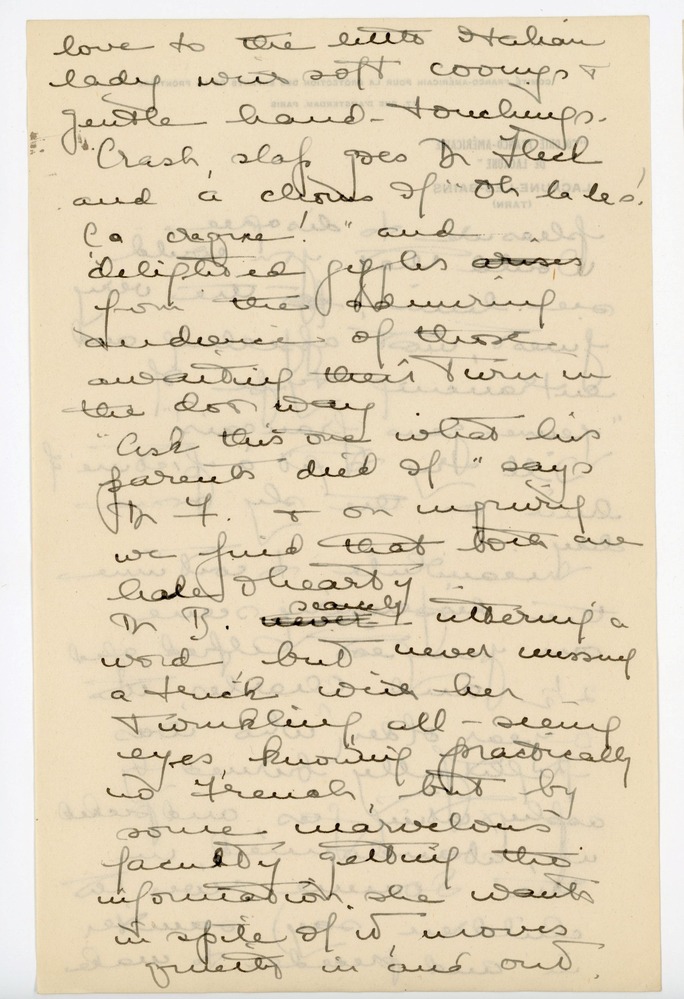 love to the little Italian
lady with soft cooings &
gentle hand-touchings.
Crash, slap goes Dr Fled
and a chorus of "Oh la la!
Ca
delighted giggles arises
from the admiring
audience of those
awaiting their turn in
the door way
"Ask this one what his
parents died of" says
Dr F. & on inquiring
we find that both are
hale & hearty
Dr B. never scarcely uttering a
word, but never missing
a trick with her
twinkling all-seeing
eyes, knowing practically
no French, but by
some marvelous
faculty getting the
information she wants
in spite of it moves
quietly in and out.